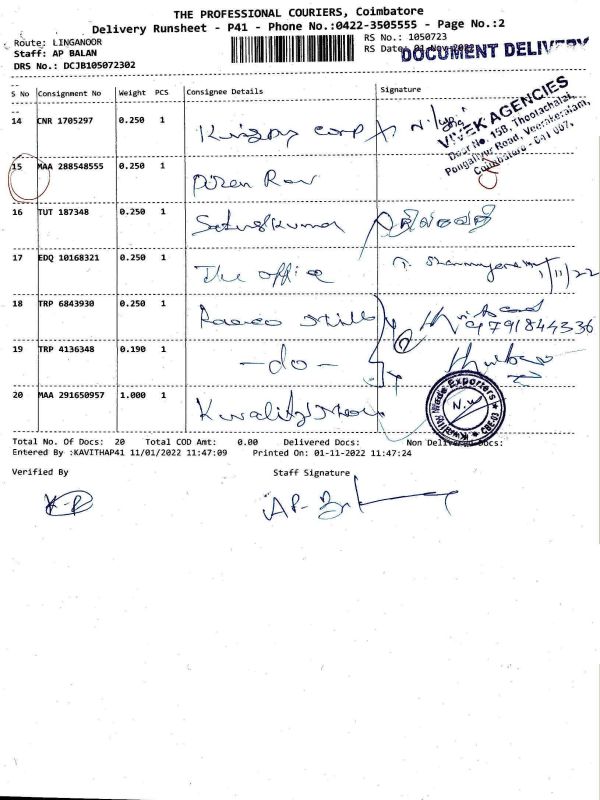 THE PROFESSIONAL COURIERS, Coimbatore
Delivery Runsheet - P41 - Phone No.:0422-3505555 - Page No.:2
Route: LINGANOOR
RS No.: 1050723
Staff: AP BALAN
RS Date: 01-Nov-2022
DOCUMENT DELIVERY
DRS No.: DCJB105072302
S No Consignment No Weight PCS Consignee Details Signature
14 CNR 1705297 0.250 1 corp
VIVEK AGENCIES
Door No. 15B, Thoolachalai,
Pongaliyur Road, Veerakeralam,
Coimbatore - 641 007.
15 MAA 288548555 0.250 1
16 TUT 187348 0.250 1
17 EDQ 10168321 0.250 1 The office 1/11/22
18 TRP 6843930 0.250 1 9791844336
19 TRP 4136348 0.190 1 -do-
20 MAA 291650957 1.000 1
Total No. Of Docs: 20 Total COD Amt: 0.00 Delivered Docs: Non Delivered Docs:
Entered By :KAVITHAP41 11/01/2022 11:47:09 Printed On: 01-11-2022 11:47:24
Verified By Staff Signature